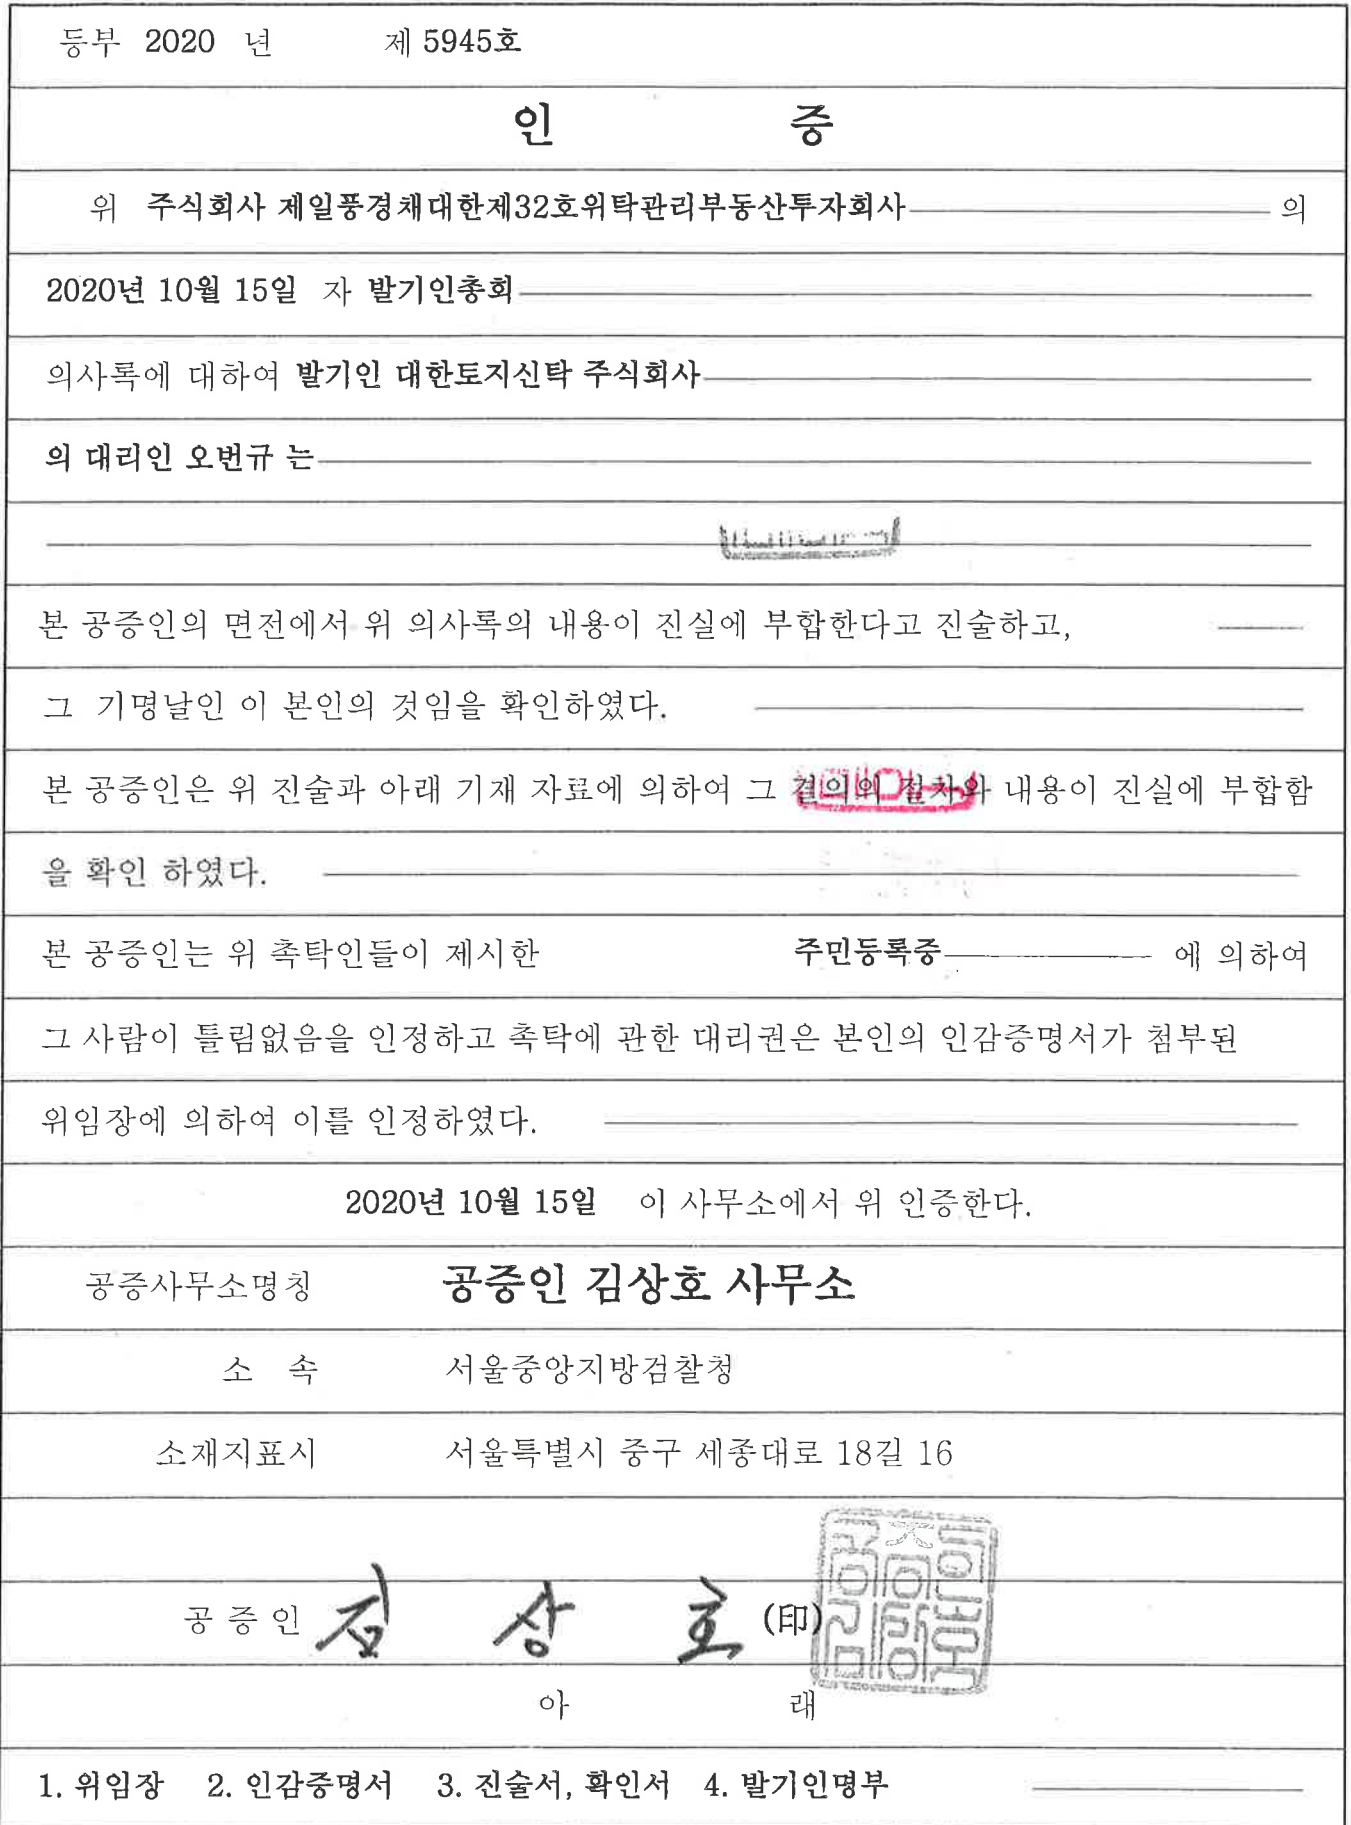 등부 2020 년 제 5945호
인 증
위 주식회사 제일풍경채대한제32호위탁관리부동산투자회사 의
2020년 10월 15일 자 발기인총회
의사록에 대하여 발기인 대한토지신탁 주식회사
의 대리인 오번규 는
본 공증인의 면전에서 위 의사록의 내용이 진실에 부합한다고 진술하고,
그 기명날인 이 본인의 것임을 확인하였다.
본 공증인은 위 진술과 아래 기재 자료에 의하여 그 결의의 절차와 내용이 진실에 부합함
을 확인 하였다.
본 공증인는 위 촉탁인들이 제시한 주민등록증 에 의하여
그 사람이 틀림없음을 인정하고 촉탁에 관한 대리권은 본인의 인감증명서가 첨부된
위임장에 의하여 이를 인정하였다.
2020년 10월 15일 이 사무소에서 위 인증한다.
공증사무소명칭 공증인 김상호 사무소
소 속 서울중앙지방검찰청
소재지표시 서울특별시 중구 세종대로 18길 16
공 증 인 김 상 호 (印)
아 래
1. 위임장 2. 인감증명서 3. 진술서, 확인서 4. 발기인명부